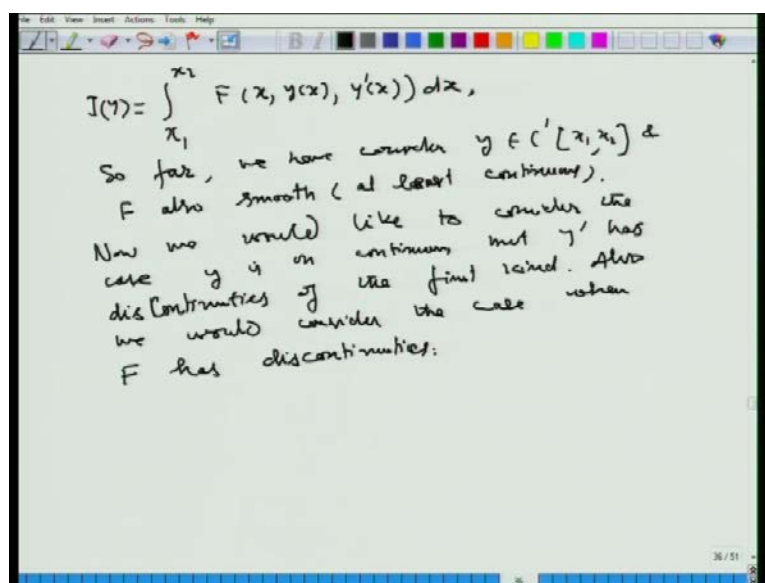 File Edit View Insert Actions Tools Help
I(y) = ∫_{x_1}^{x_2} F(x, y(x), y'(x)) dx,
So far, we have consider y ∈ C'[x_1, x_2] &
F also smooth (at least continuous).
Now we would like to consider the
case y is on continuous but y' has
discontinuties of the first kind. Also
we would consider the case when
F has discontinuties.
36/51